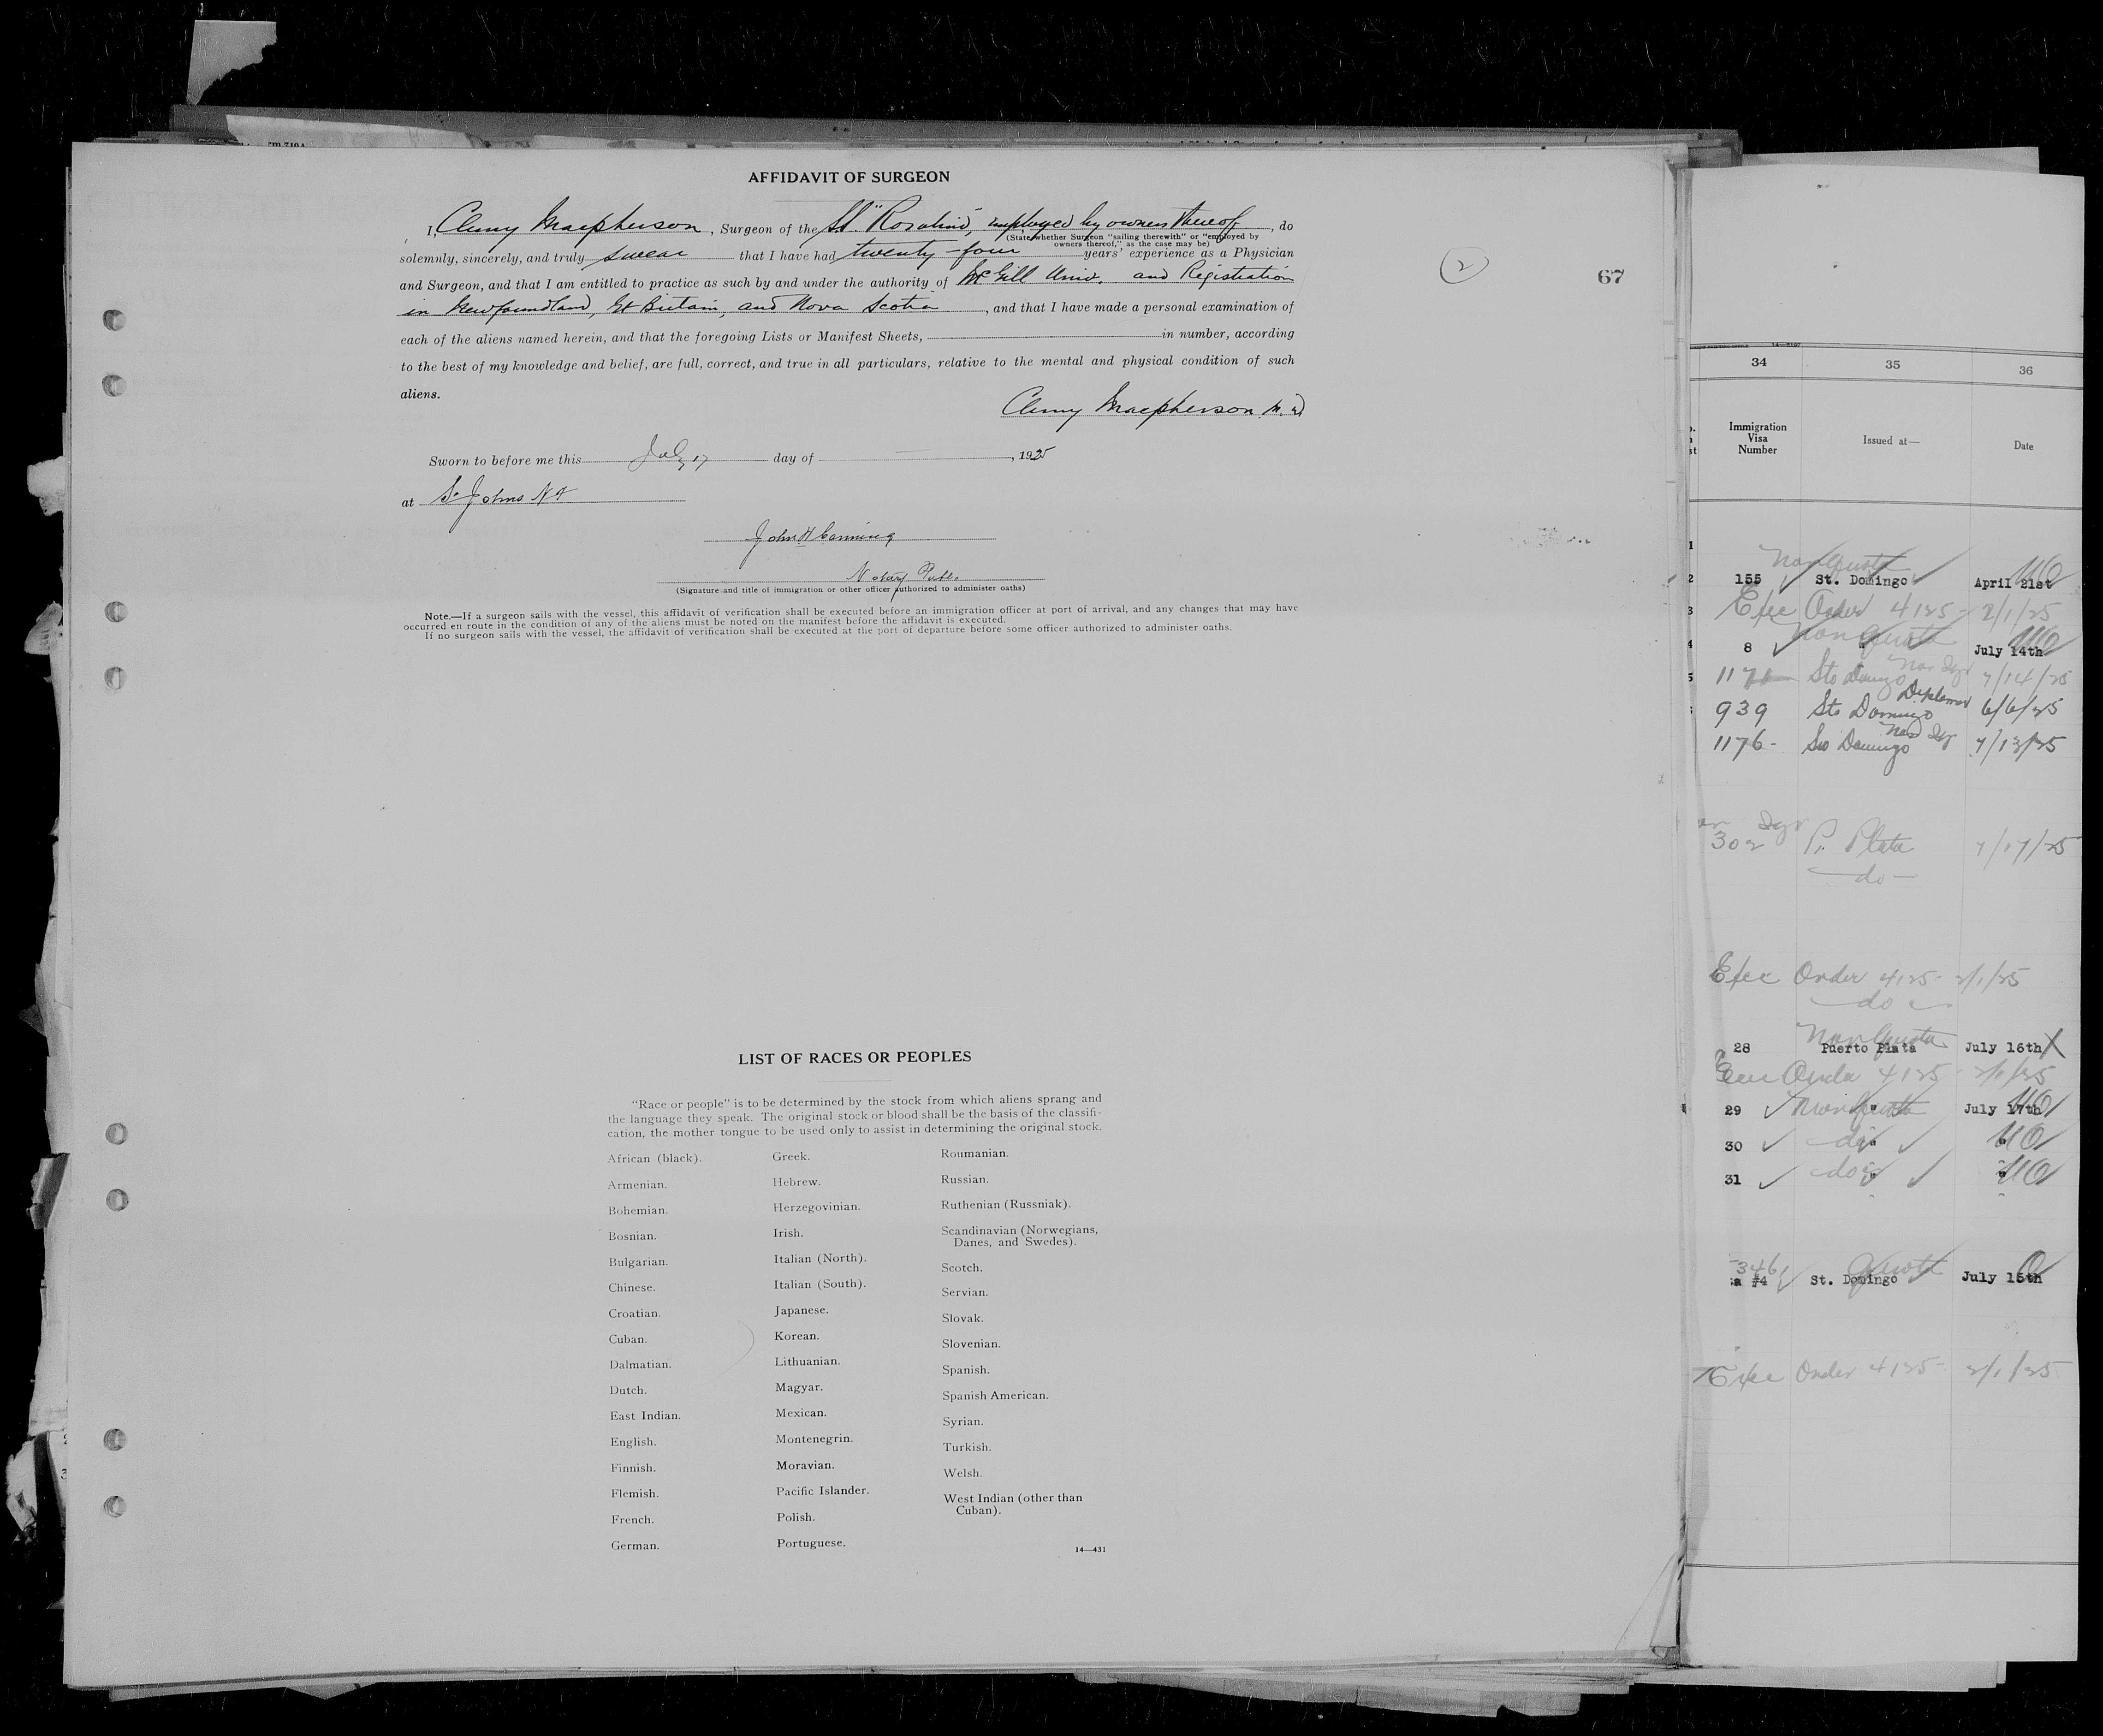 AFFIDAVIT OF SURGEON
I, Cluny Macpherson, Surgeon of the SS. "Rosalind", employed by owners thereof, do
(State whether Surgeon "sailing therewith" or "employed by
owners thereof," as the case may be)
solemnly, sincerely, and truly swear that I have had twenty-four years' experience as a Physician
and Surgeon, and that I am entitled to practice as such by and under the authority of McGill Univ. and Registration
in Newfoundland, Gt Britain, and Nova Scotia, and that I have made a personal examination of
each of the aliens named herein, and that the foregoing Lists or Manifest Sheets, in number, according
to the best of my knowledge and belief, are full, correct, and true in all particulars, relative to the mental and physical condition of such
aliens.
Cluny Macpherson M.D.
Sworn to before me this July 17 day of , 1925
at St Johns NF
John H Canning
Notary Public
(Signature and title of immigration or other officer authorized to administer oaths)
Note.—If a surgeon sails with the vessel, this affidavit of verification shall be executed before an immigration officer at port of arrival, and any changes that may have
occurred en route in the condition of any of the aliens must be noted on the manifest before the affidavit is executed.
If no surgeon sails with the vessel, the affidavit of verification shall be executed at the port of departure before some officer authorized to administer oaths.
2
67
LIST OF RACES OR PEOPLES
"Race or people" is to be determined by the stock from which aliens sprang and
the language they speak. The original stock or blood shall be the basis of the classifi-
cation, the mother tongue to be used only to assist in determining the original stock.
African (black).
Armenian.
Bohemian.
Bosnian.
Bulgarian.
Chinese.
Croatian.
Cuban.
Dalmatian.
Dutch.
East Indian.
English.
Finnish.
Flemish.
French.
German.
Greek.
Hebrew.
Herzegovinian.
Irish.
Italian (North).
Italian (South).
Japanese.
Korean.
Lithuanian.
Magyar.
Mexican.
Montenegrin.
Moravian.
Pacific Islander.
Polish.
Portuguese.
Roumanian.
Russian.
Ruthenian (Russniak).
Scandinavian (Norwegians,
Danes, and Swedes).
Scotch.
Servian.
Slovak.
Slovenian.
Spanish.
Spanish American.
Syrian.
Turkish.
Welsh.
West Indian (other than
Cuban).
14—431
34 35 36
Immigration
Visa
Number
Issued at—
Date
Non Quota
155 St. Domingo April 21st
Exec Order 4125- 2/1/25
Non Quota
8 " July 14th
Sto Domingo 7/14/25
Diplomat
939 Sto Domingo 6/6/25
1176- Sto Domingo 7/13/25
302 P. Plata 7/17/25
do
Exec Order 4125- 2/1/25
do
Non Quota
28 Puerto Plata July 16th
Exec Order 4125 2/1/25
29 Non Quota " July 17th
30 do " "
31 do " "
346 Quota
#4 St. Domingo July 15th
Exec Order 4125- 2/1/25